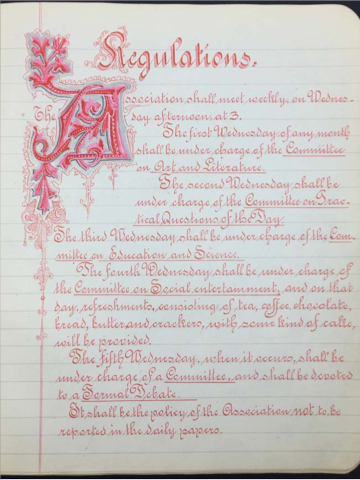 Regulations.
The Association shall meet weekly, on Wednes-
day afternoon, at 3.
The first Wednesday of any month
shall be under charge of the Committee
on Art and Literature.
The second Wednesday shall be
under charge of the Committee on Prac-
tical Questions of the Day.
The third Wednesday shall be under charge of the Com-
mittee on Education and Science.
The fourth Wednesday shall be under charge of
the Committee on Social entertainment, and on that
day, refreshments, consisting of tea, coffee, chocolate,
bread, butter and crackers, with some kind of cake,
will be provided.
The Fifth Wednesday, when it occurs, shall be
under charge of a Committee, and shall be devoted
to a Formal Debate.
It shall be the policy of the Association not to be
reported in the daily papers.